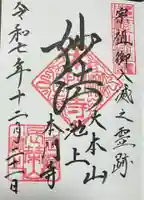 宗祖御入滅之霊跡
大本山
池上
妙法
本門寺
令和七年十二月二十一日